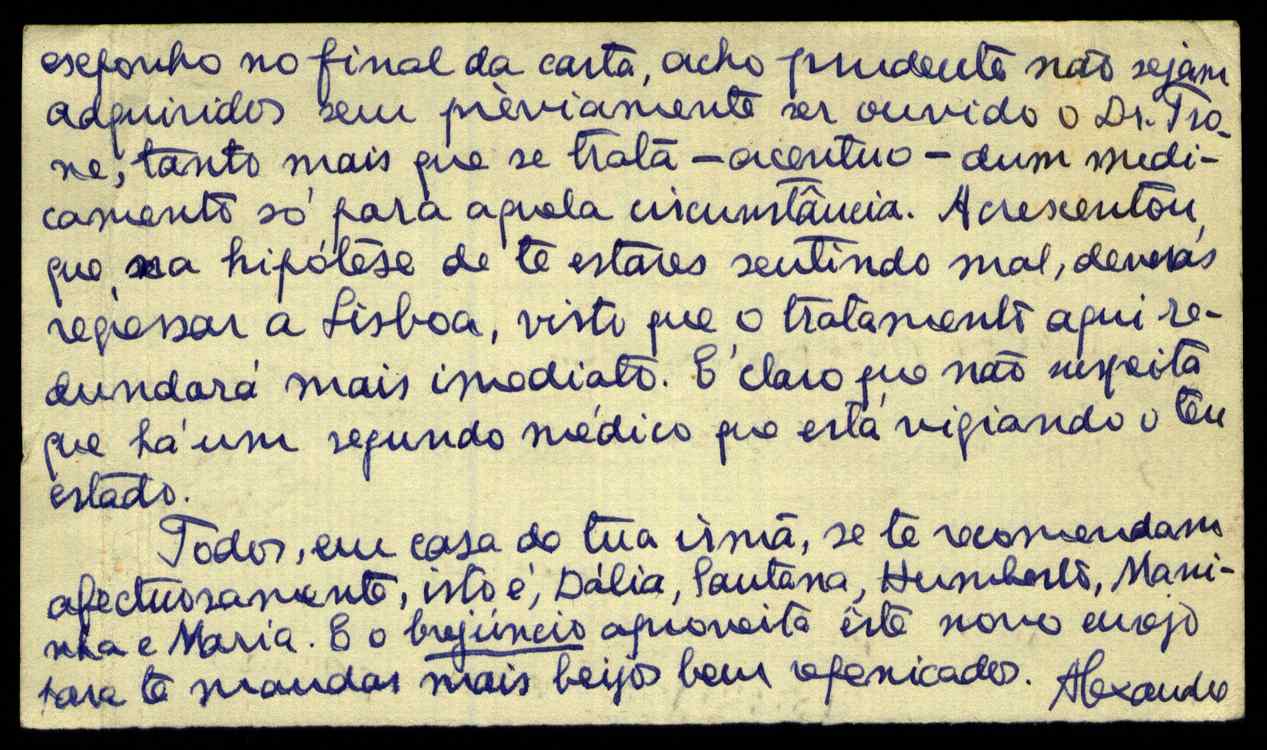 exponho no final da carta, acho prudente não sejam
adquiridos sem prèviamente ser ouvido o Dr. Tro-
ne, tanto mais que se trata – acentuo – dum medi-
camento só para aquela circunstância. Acrescentou
que, na hipótese de te estares sentindo mal, deverás
regressar a Lisboa, visto que o tratamento aqui re-
dundará mais imediato. É claro que não suspeita
que há um segundo médico que está vigiando o teu
estado.
Todos, em casa da tua irmã, se te recomendam
afectuosamente, isto é, Dália, Santana, Humberto, Mani-
nha e Maria. E o brejúncio aproveita êste novo ensejo
para te mandar mais beijos bem repenicados. Alexandre